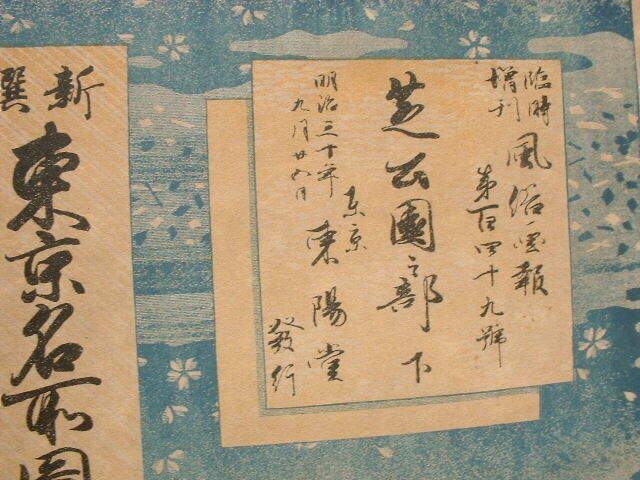 臨時
増刊
風俗画報
第百四十九號
芝公園之部 下
明治三十年
九月廿五日
東京
東陽堂
發行
新撰
東京名所圖